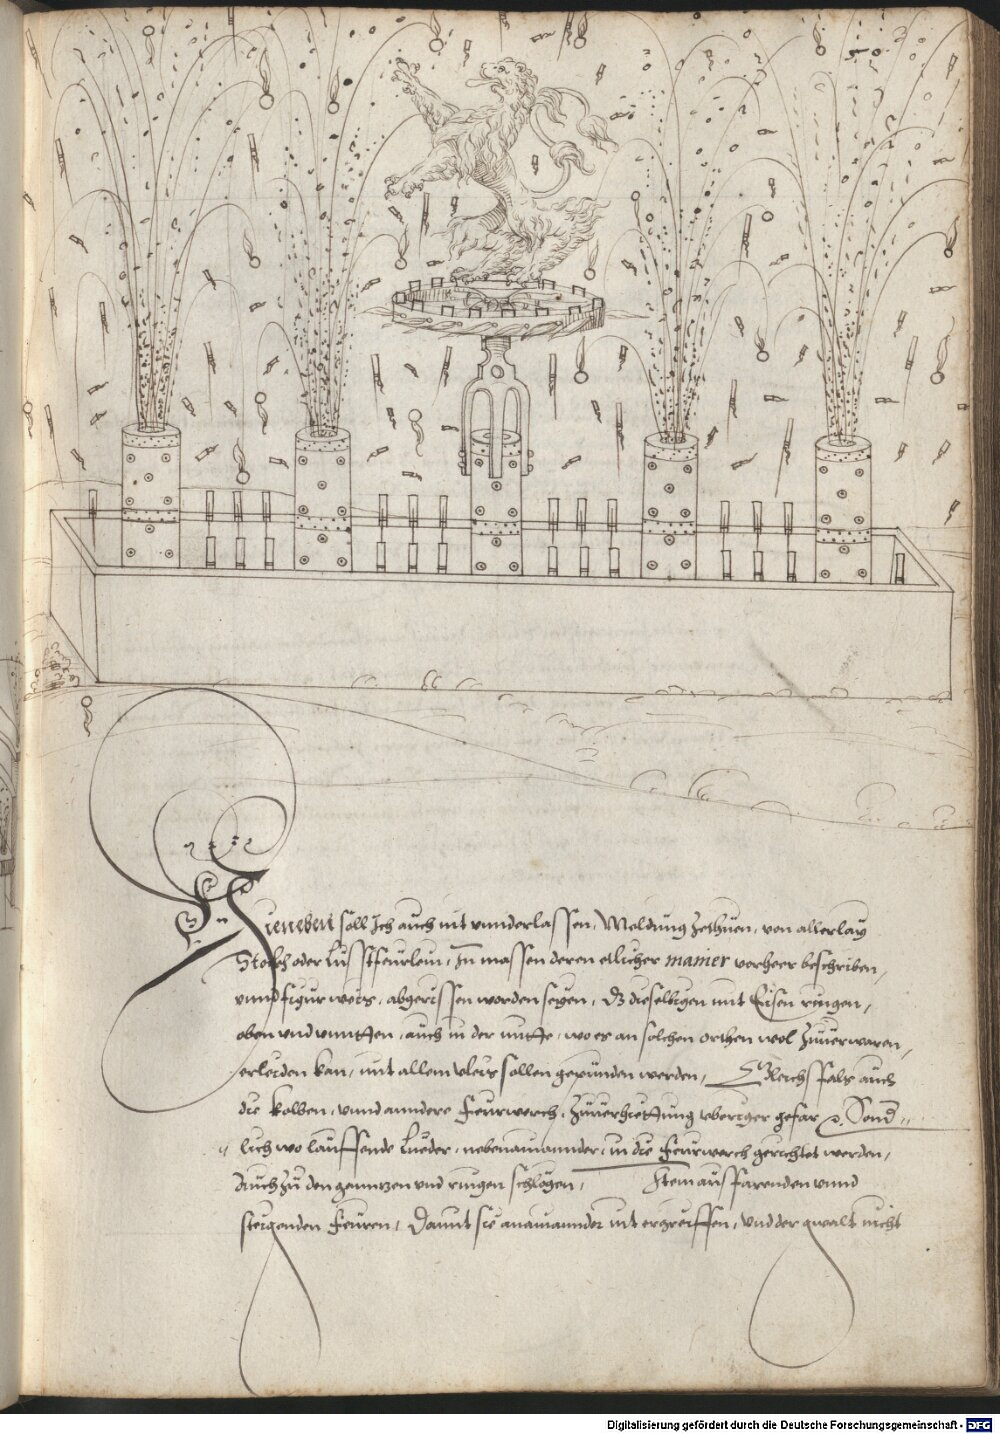 Hieneben soll Ich auch nit vnnderlassen, Meldung zethuen, von allerlay
Stockh oder Lusstfeurlein, In massen deren etlicher manier vorheer beschriben,
vnnd figur weis, abgerissen worden seyen, Dz dieselbigen mit Eisen ringen,
oben vnd vnntten, auch in der mitte, wo es an solchen orthen wol Zuuerwaren,
erleiden kan, mit allem vleis sollen gepunden werden, Gleichsfals auch
die kolben, vnnd anndere Feurwerch, Zuuerhiettung yberiger gefar Sond„
„lich wo lauffende Lueder, nebenainannder, in die Feurwerch gerichtet werden,
Auch Zu den ganntzen vnd ringen schlegen, Item ausfarenden vnnd
steigenden Feuren, Damit sie anainannder nit ergreiffen, vnd der gwalt nicht
Digitalisierung gefördert durch die Deutsche Forschungsgemeinschaft - DFG